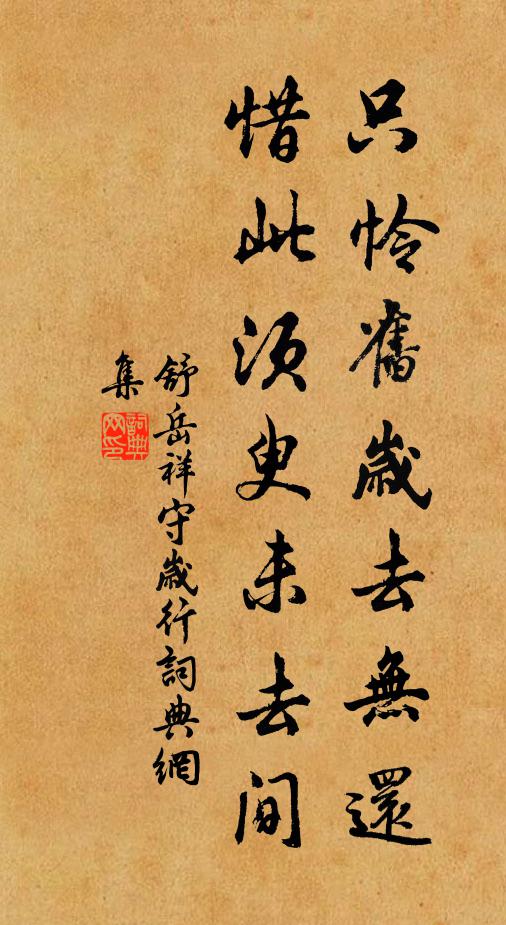 只怜舊歲去無還
惜此須臾未去間
舒岳祥守歲行詞典網
集
詞典網印